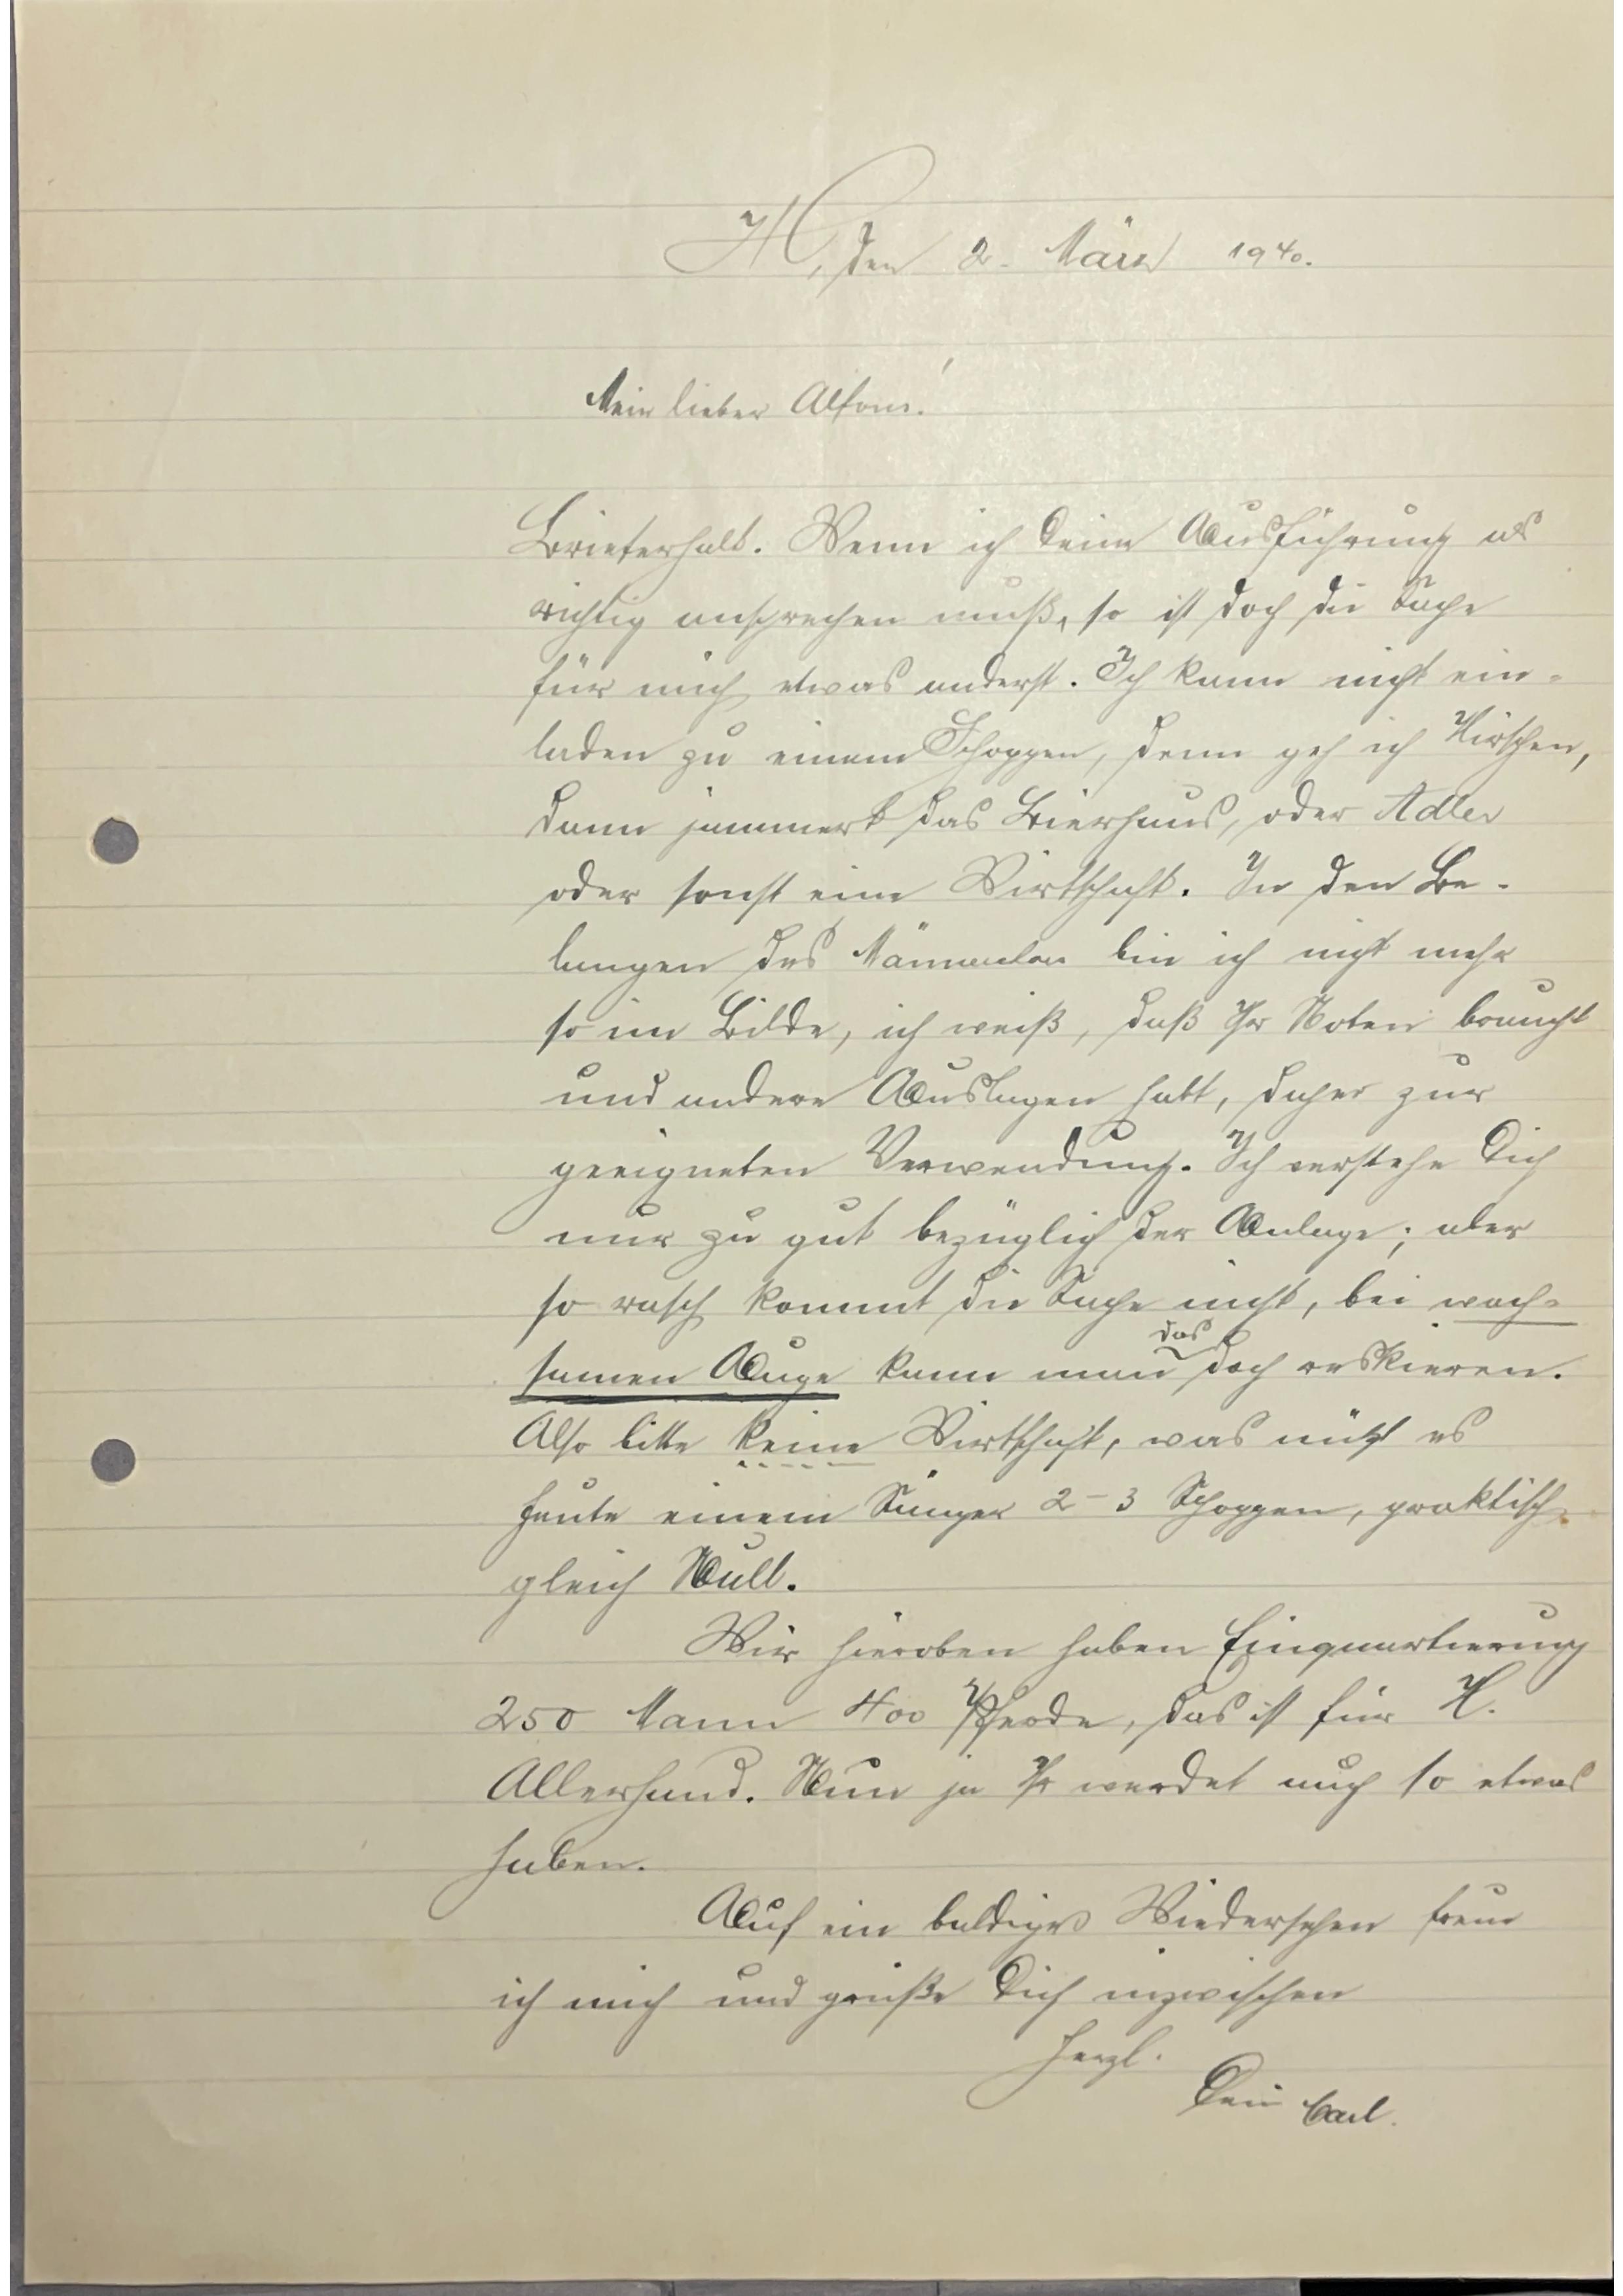 H, den 2. März 1940.
Mein lieber Alfons!
Brieferhalt. Wenn ich Deine Ausführung als
richtig ansprechen muß, so ist doch die Sache
für mich etwas anderst. Ich kann nicht ein-
laden zu einem Schoppen, denn geh ich Hirschen,
dann jammert das Bierhaus, oder Adler
oder sonst eine Wirtschaft. In den Be-
langen des Männerchor bin ich nicht mehr
so im Bilde, ich weiß, daß Ihr Noten braucht
und andere Auslagen habt, daher zur
geeigneten Verwendung. Ich verstehe Dich
nur zu gut bezüglich der Anlage; aber
so rasch kommt die Sache nicht, bei wach-
samen Auge kann man das doch reskieren.
Also bitte keine Wirtschaft, was nützt es
heute einem Sänger 2-3 Schoppen, praktisch
gleich Null.
Wir hieroben haben Einquartierung
250 Mann 400 Pferde, das ist für H.
Allerhand. Nun ja Ihr werdet auch so etwas
haben.
Auf ein baldiges Wiedersehen freue
ich mich und grüße Dich inzwischen
herzl.
Dein Carl.